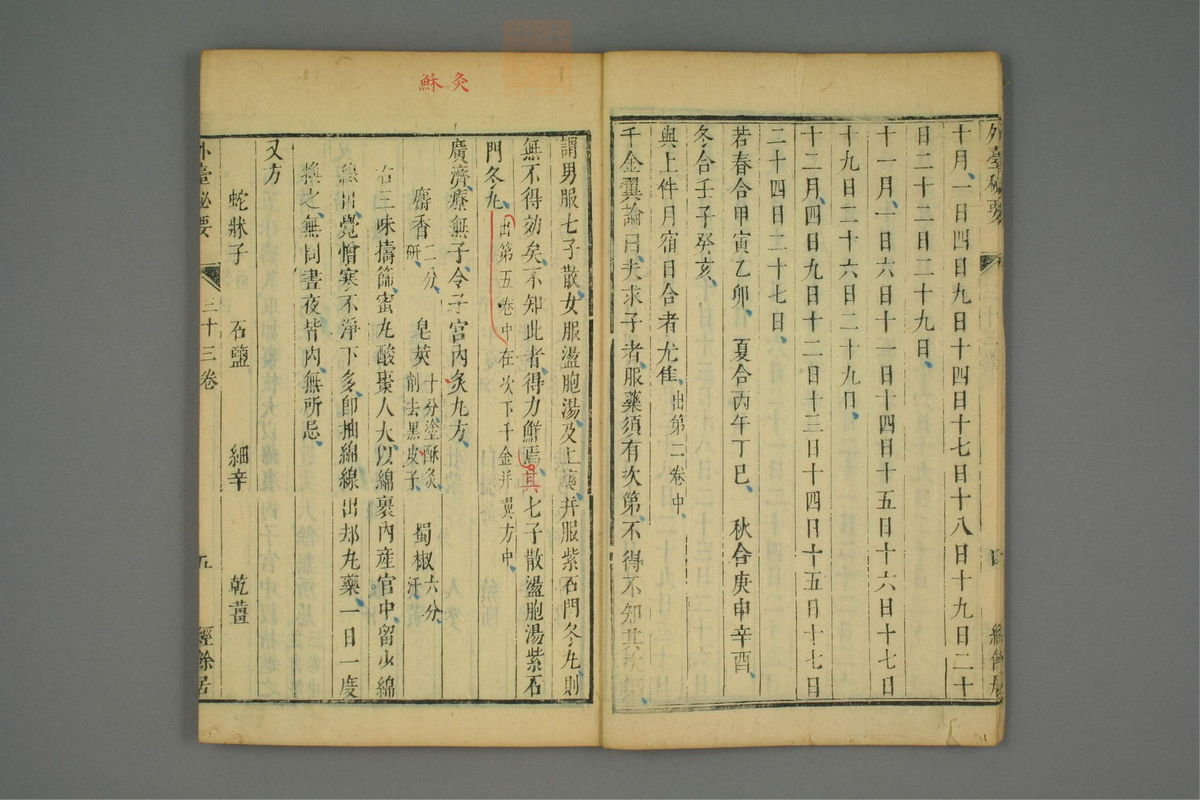 外臺秘要
四
經餘居
十月一日四日九日十四日十七日十八日十九日二十
日二十二日二十九日
十一月一日六日十一日十四日十五日十六日十七日
十九日二十六日二十九日
十二月四日九日十二日十三日十四日十五日十七日
二十四日二十七日
若春合甲寅乙卯 夏合丙午丁巳 秋合庚申辛酉
冬合壬子癸亥
與上件月宿日合者尤佳出第二卷中
千金翼論曰夫求子者服藥須有次第不得不知其次第
謂男服七子散女服盪胞湯及坐藥并服紫石門冬丸則
無不得効矣不知此者得力鮮焉其七子散盪胞湯紫石
門冬丸出第五卷中在次下千金并翼方中
廣濟療無子令子宮內灸丸方
麝香二分研 皂莢十分塗酥灸削去黑皮子 蜀椒六分汗
右三味擣篩蜜丸酸棗人大以綿裹內產宮中留少綿
線出覺憎寒不淨下多即抽綿線出却丸藥一日一度
換之無問晝夜皆內無所忌
又方
蛇牀子 石鹽 細辛 乾薑
外臺秘要
三十三卷
五
經餘居
灸
酥